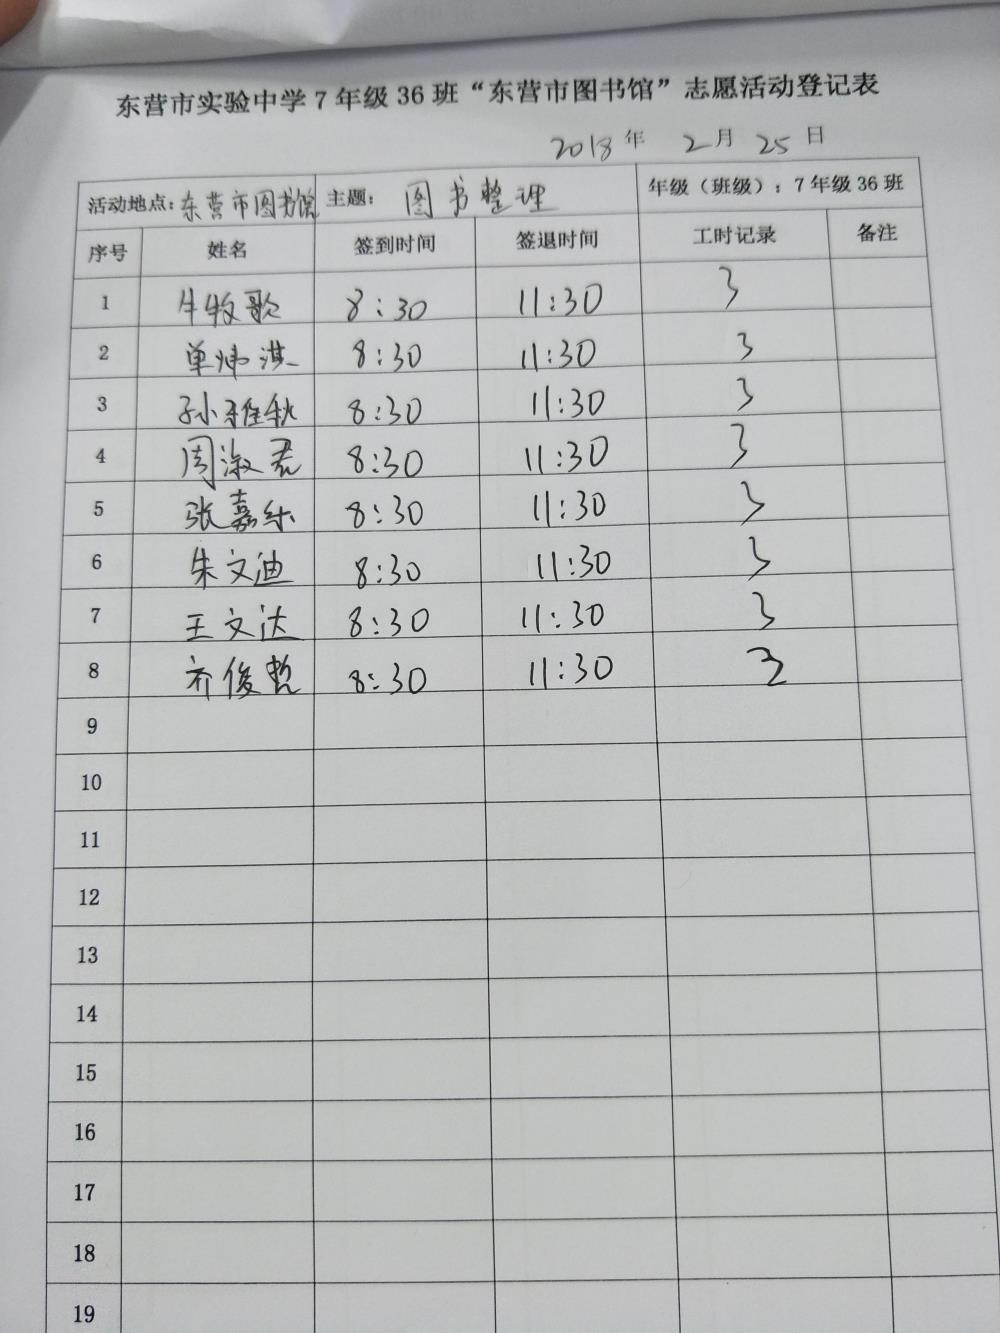 东营市实验中学7年级36班“东营市图书馆”志愿活动登记表
2018年 2月 25日
活动地点：东营市图书馆 主题： 图书整理 年级（班级）：7年级36班
序号 姓名 签到时间 签退时间 工时记录 备注
1 牛牧歌 8:30 11:30 3
2 单炜淇 8:30 11:30 3
3 孙雅秋 8:30 11:30 3
4 周淑君 8:30 11:30 3
5 张嘉乐 8:30 11:30 3
6 朱文迪 8:30 11:30 3
7 王文达 8:30 11:30 3
8 齐俊哲 8:30 11:30 3
9
10
11
12
13
14
15
16
17
18
19